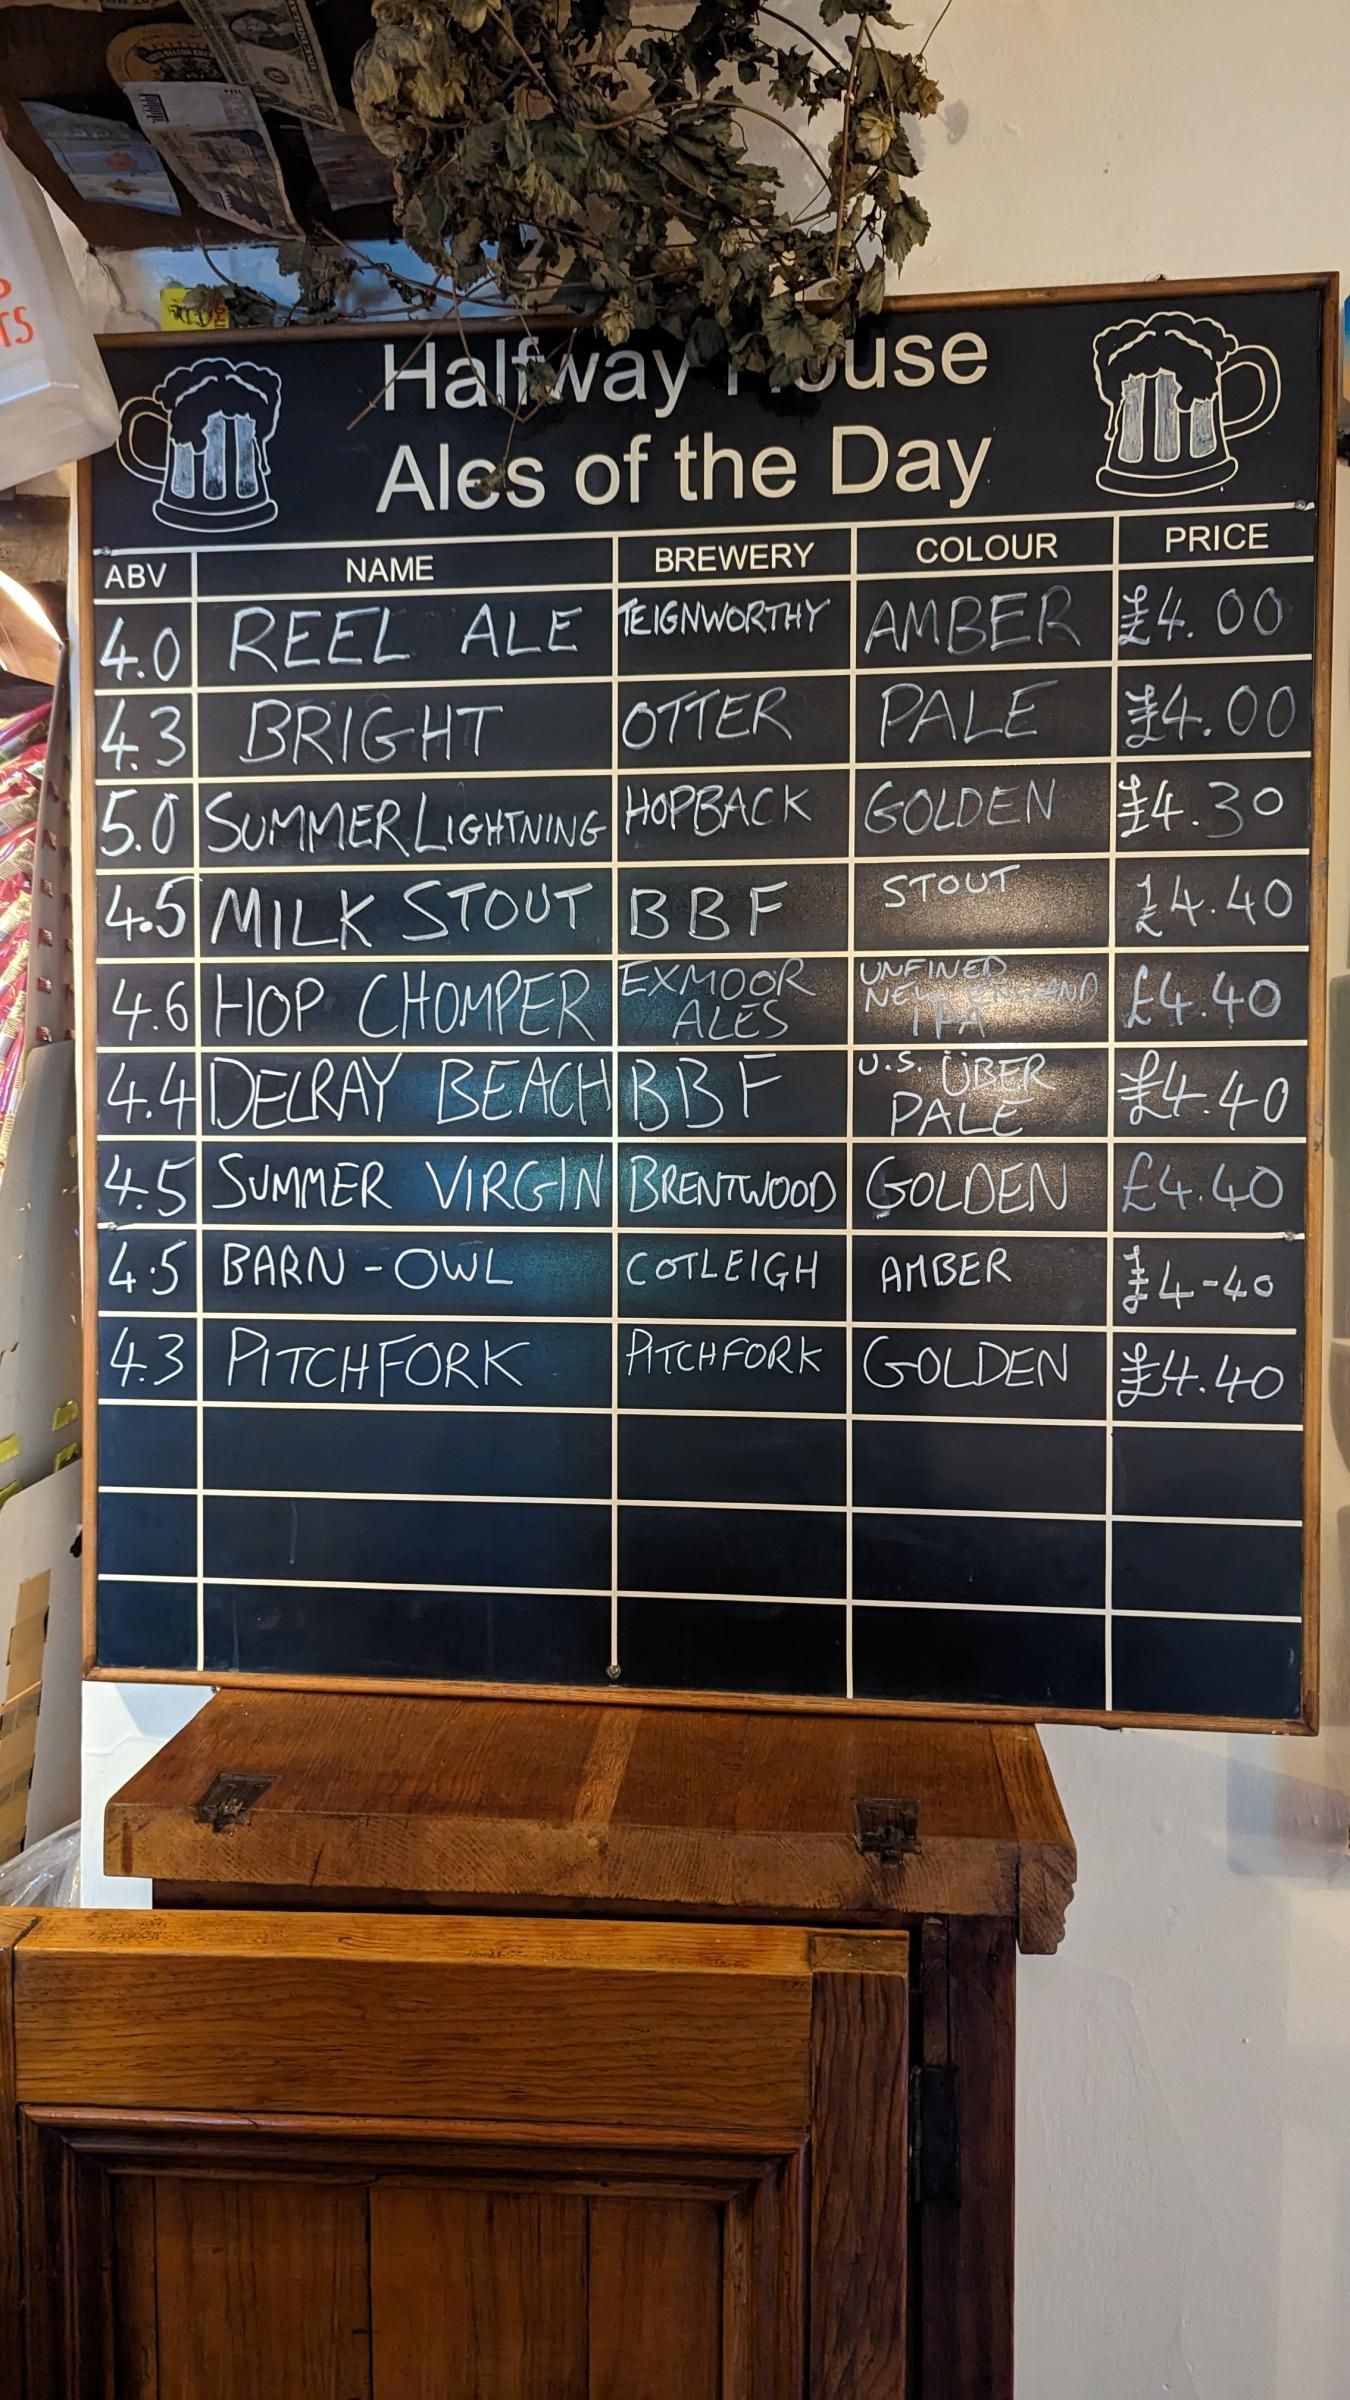 TS
Halfway House
Ales of the Day
ABV NAME BREWERY COLOUR PRICE
4.0 REEL ALE TEIGNWORTHY AMBER £4.00
4.3 BRIGHT OTTER PALE £4.00
5.0 SUMMER LIGHTNING HOPBACK GOLDEN £4.30
4.5 MILK STOUT BBF STOUT £4.40
4.6 HOP CHOMPER EXMOOR ALES UNFINED NEW ENGLAND IPA £4.40
4.4 DELRAY BEACH BBF U.S. ÜBER PALE £4.40
4.5 SUMMER VIRGIN BRENTWOOD GOLDEN £4.40
4.5 BARN-OWL COTLEIGH AMBER £4-40
4.3 PITCHFORK PITCHFORK GOLDEN £4.40